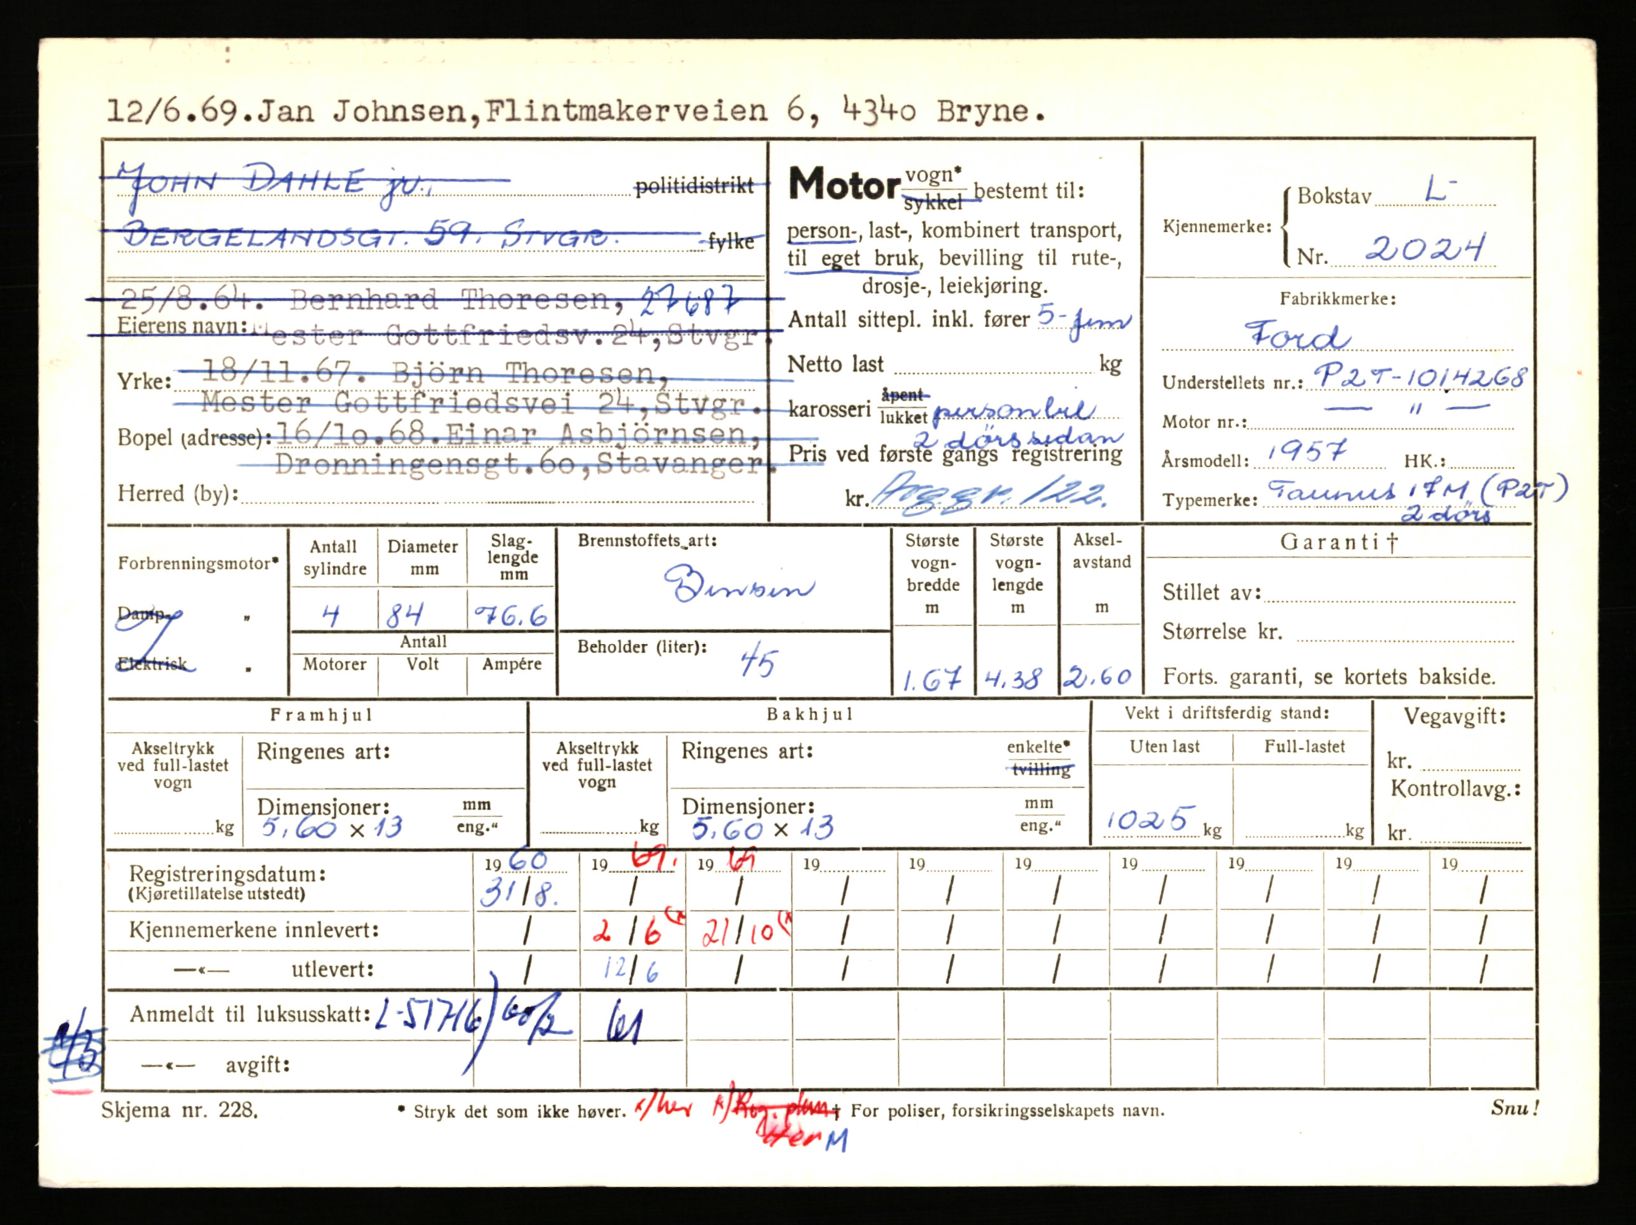 12/6.69.Jan Johnsen,Flintmakerveien 6, 4340 Bryne.
JOHN DAHLE jr. politidistrikt
BERGELANDSGT. 59. STVGR. fylke
25/8.64. Bernhard Thoresen, 27687
Eierens navn: Mester Gottfriedsv.24,Stvgr.
Yrke: 18/11.67. Björn Thoresen,
Mester Gottfriedsvei 24,Stvgr.
Bopel (adresse): 16/10.68.Einar Asbjörnsen,
Dronningensgt.60,Stavanger.
Herred (by):
Motor vogn* sykkel bestemt til:
person-, last-, kombinert transport,
til eget bruk, bevilling til rute-,
drosje-, leiekjøring.
Antall sittepl. inkl. fører 5-fem
Netto last kg
karosseri åpent lukket personbil
2 dørs sedan
Pris ved første gangs registrering
kr. 122.
Kjennemerke: Bokstav L-
Nr. 2024
Fabrikkmerke:
Ford
Understellets nr.: P2T-1014268
Motor nr.: — " —
Årsmodell: 1957 HK.:
Typemerke: Taunus 17M (P2T)
2 dørs
Forbrenningsmotor*
Damp- "
Elektrisk "
Antall sylindre
4
Diameter mm
84
Slag-lengde mm
76.6
Antall
Motorer Volt Ampére
Brennstoffets art:
Bensin
Beholder (liter):
45
Største vogn-bredde m
1.67
Største vogn-lengde m
4.38
Aksel-avstand m
2.60
Garanti †
Stillet av:
Størrelse kr.
Forts. garanti, se kortets bakside.
Framhjul
Akseltrykk ved full-lastet vogn
kg
Ringenes art:
Dimensjoner: mm
5,60 × 13 eng."
Bakhjul
Akseltrykk ved full-lastet vogn
kg
Ringenes art: enkelte*
tvilling
Dimensjoner: mm
5,60 × 13 eng."
Vekt i driftsferdig stand:
Uten last Full-lastet
1025 kg kg
Vegavgift:
kr.
Kontrollavg.:
kr.
Registreringsdatum: 19 60 19 69. 19 69 19 19 19 19 19 19 19
(Kjøretillatelse utstedt) 31/8. / / / / / / / / /
Kjennemerkene innlevert: / 2/6 (x 21/10 (x / / / / / / /
—«— utlevert: / 12/6 / / / / / / / /
Anmeldt til luksusskatt: L-51716) 60/2 61
—«— avgift:
Skjema nr. 228.
* Stryk det som ikke høver.
x/her
† For poliser, forsikringsselskapets navn.
Snu!
M